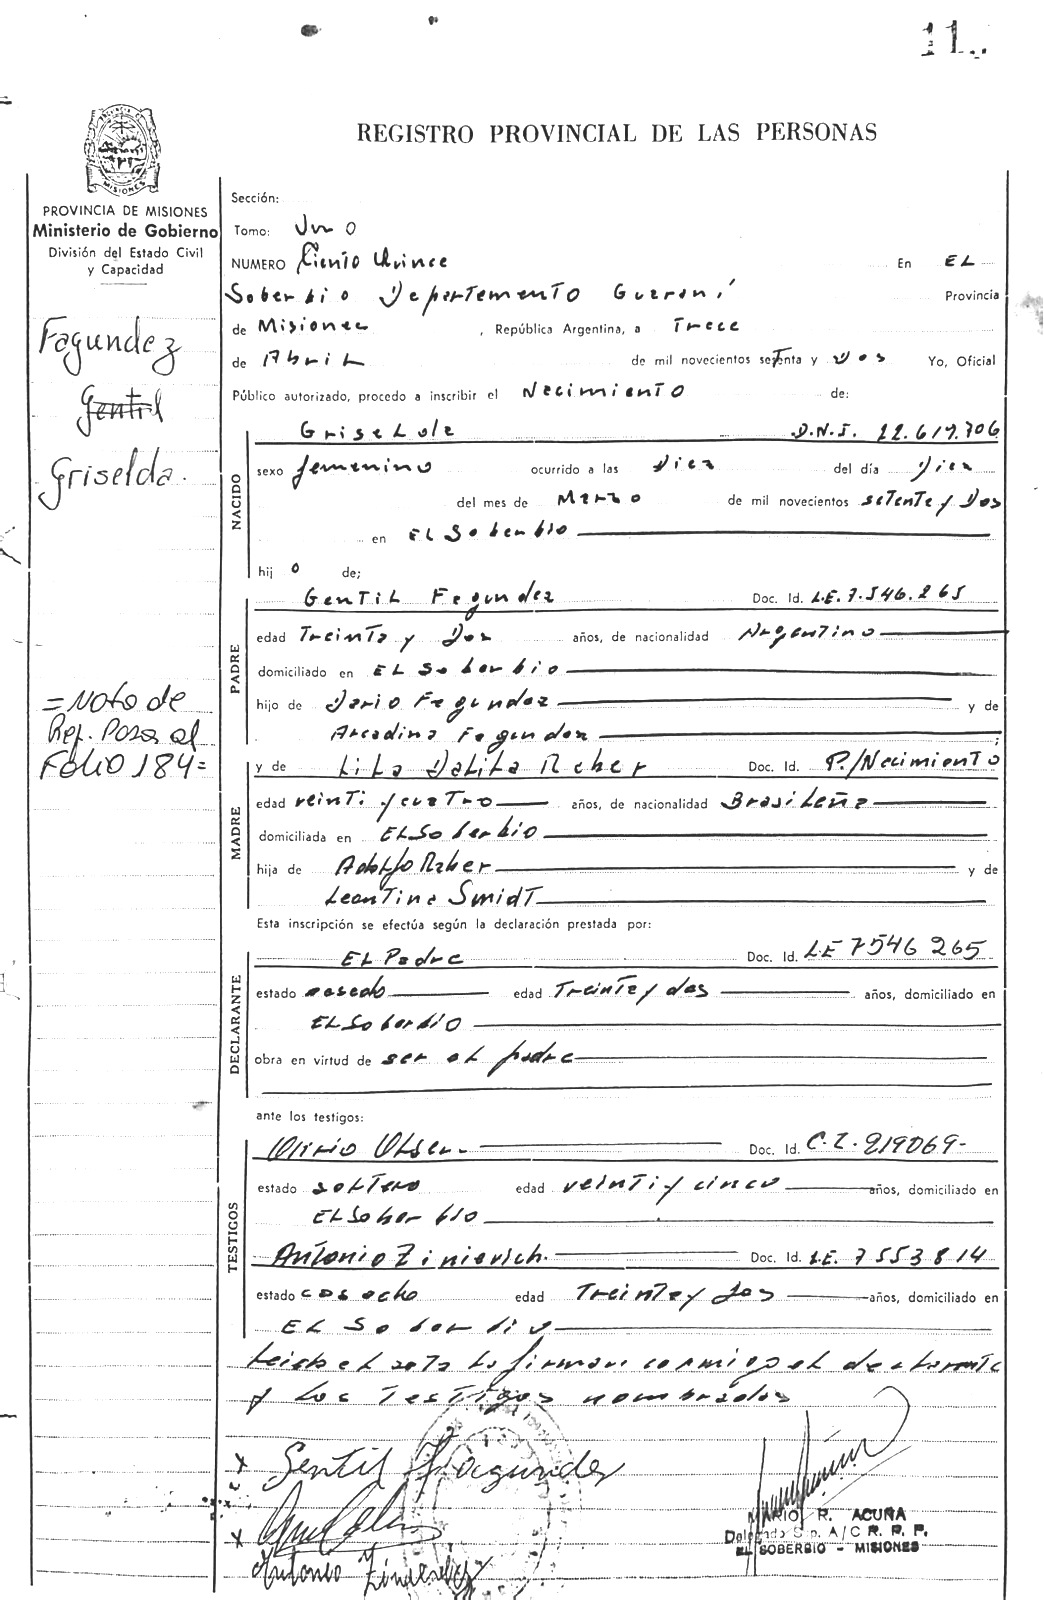 11
REGISTRO PROVINCIAL DE LAS PERSONAS
PROVINCIA DE MISIONES
Ministerio de Gobierno
División del Estado Civil
y Capacidad
Fagundez
Gentil
Griselda.
=Nota de
Rep. Pasa al
Folio 184=
Sección:
Tomo: Uno
NUMERO Ciento Quince En EL
Soberbio Departamento Guaraní Provincia
de Misiones, República Argentina, a Trece
de Abril de mil novecientos setenta y Dos Yo, Oficial
Público autorizado, procedo a inscribir el Nacimiento de:
NACIDO
Griselda D.N.I. 22.617.706
sexo femenino ocurrido a las Diez del día Diez
del mes de Marzo de mil novecientos setenta y Dos
en El Soberbio
hij o de;
PADRE
Gentil Fagundez Doc. Id. L.E. 7.546.265
edad Treinta y Dos años, de nacionalidad Argentino
domiciliado en EL Soberbio
hijo de Dario Fagundez y de
Arcadina Fagundez ;
MADRE
y de Lila Dalila Raber Doc. Id. P./Nacimiento
edad veinti y cuatro años, de nacionalidad Brasileña
domiciliada en EL Soberbio
hija de Adolfo Raber y de
Leontina Smidt
Esta inscripción se efectúa según la declaración prestada por:
DECLARANTE
EL Padre Doc. Id. LE 7546265
estado casado edad Treinta y dos años, domiciliado en
EL Soberbio
obra en virtud de ser el padre
ante los testigos:
TESTIGOS
Olirio Olsen Doc. Id. C.I. 219069-
estado soltero edad veinti y cinco años, domiciliado en
EL Soberbio
Antonio Zinievich. Doc. Id. L.E. 7553814
estado casado edad Treinta y dos años, domiciliado en
EL Soberbio
Leida el acta la firman conmigo el declarante
y los Testigos nombrados
Gentil Fagundez
Antonio
MARIO R. ACUÑA
Delegado Sup. A/C R. P. P.
EL SOBERBIO - MISIONES